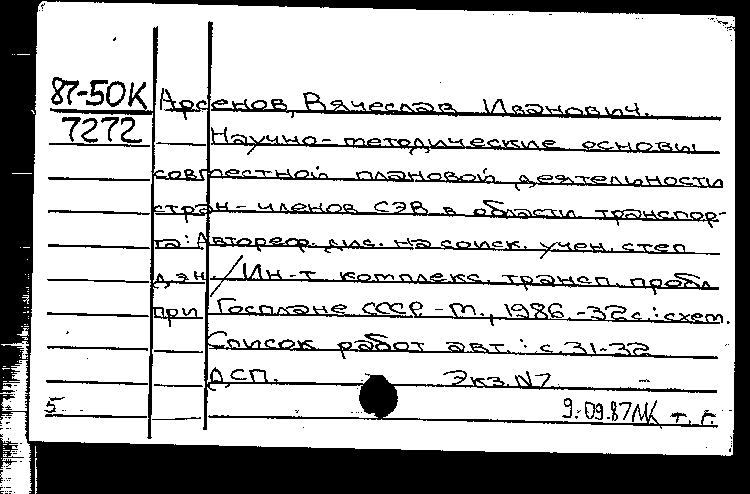 87-50К Арсенов, Вячеслав Иванович.
7272 Научно-методические основы
совместной плановой деятельности
стран-членов СЭВ в области транспор-
та: Автореф. дис. на соиск. учен. степ
д.э.н. / Ин-т комплекс. трансп. пробл
при Госплане СССР - М., 1986.-32с.:схем.
Список работ авт.: с.31-32
ДСП. Экз.N7 -
5 9.09.87МК т. г.